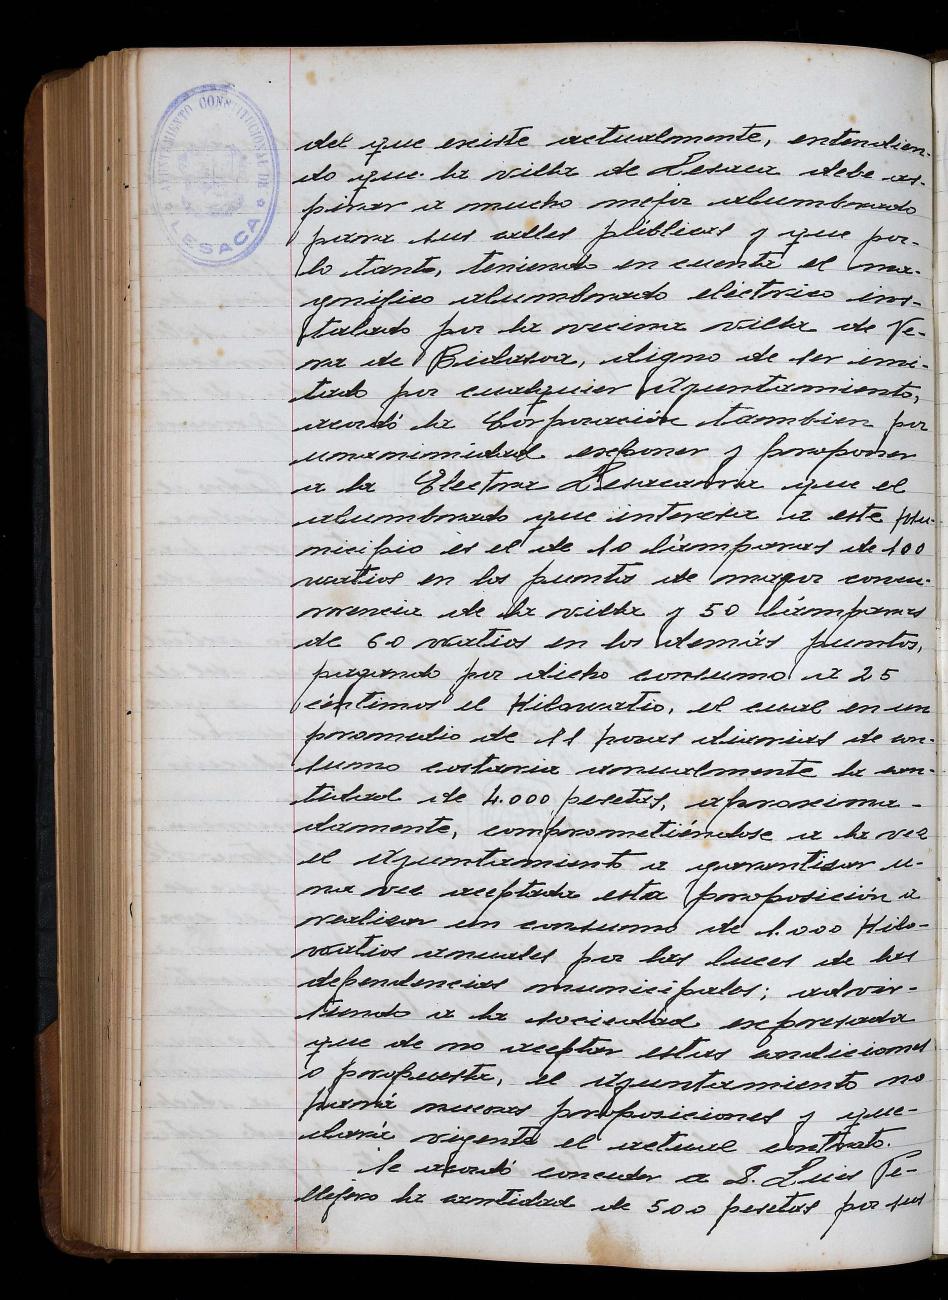 AYUNTAMIENTO CONSTITUCIONAL DE
LESACA
del que existe actualmente, entendien-
do que la villa de Lesaca debe as-
pirar a mucho mejor alumbrado
para sus calles públicas y que por
lo tanto, teniendo en cuenta el ma-
gnifico alumbrado electrico ins-
talado por la vecina villa de Ve-
ra de Bidasoa, digno de ser imi-
tado por cualquier Ayuntamiento,
acordó la Corporación tambien por
unanimidad exponer y proponer
a la Electra Lesacarra que el
alumbrado que interesa a este Mu-
nicipio es el de 10 lámparas de 100
watios en los puntos de mayor concu-
rrencia de la villa y 50 lámparas
de 60 watios en los demás puntos,
pagando por dicho consumo a 25
céntimos el Kilowatio, el cual en un
promedio de 11 horas diarias de con-
sumo costaria anualmente la can-
tidad de 4.000 pesetas, aproxima-
damente, comprometiéndose a la vez
el Ayuntamiento a garantizar u-
na vez aceptada esta proposición a
realizar un consumo de 1.000 Kilo-
watios anuales por las luces de las
dependencias municipales; advir-
tiendo a la sociedad expresada
que de no aceptar estas condiciones
o propuesta, el Ayuntamiento no
hará nuevas proposiciones y que-
dará vigente el actual contrato.
Se acordó conceder a D. Luis Pe-
llejero la cantidad de 500 pesetas por sus